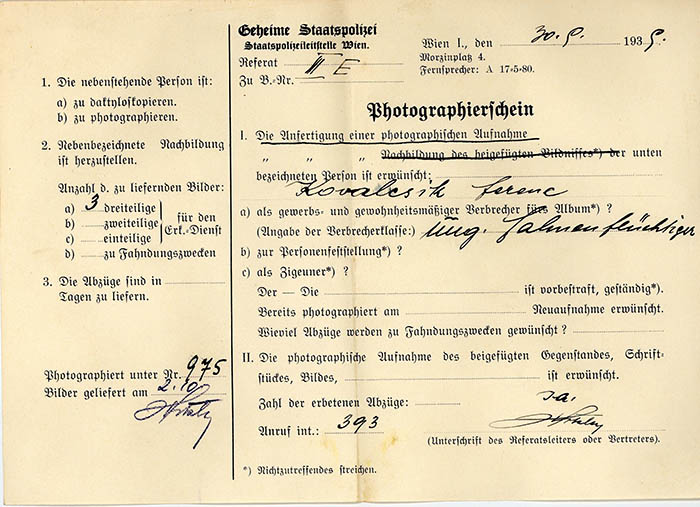 1. Die nebenstehende Person ist:
a) zu daktyloskopieren.
b) zu photographieren.
2. Nebenbezeichnete Nachbildung
ist herzustellen.
Anzahl d. zu liefernden Bilder:
a) 3 dreiteilige
b) zweiteilige
c) einteilige
für den
Erk.-Dienst
d) zu Fahndungszwecken
3. Die Abzüge sind in
Tagen zu liefern.
Photographiert unter Nr. 975
Bilder geliefert am 2.10
Geheime Staatspolizei
Staatspolizeileitstelle Wien.
Referat III E
Zu B.-Nr.
Wien I., den 30. 9. 1939.
Morzinplatz 4.
Fernsprecher: A 17-5-80.
Photographierschein
I. Die Anfertigung einer photographischen Aufnahme
" " " Nachbildung des beigefügten Bildnisses*) der unten
bezeichneten Person ist erwünscht:
Kovalcsik Ferenc
a) als gewerbs- und gewohnheitsmäßiger Verbrecher fürs Album*) ?
(Angabe der Verbrecherklasse:) Ung.
b) zur Personenfeststellung*) ?
c) als Zigeuner*) ?
Der — Die ist vorbestraft, geständig*).
Bereits photographiert am Neuaufnahme erwünscht.
Wieviel Abzüge werden zu Fahndungszwecken gewünscht ?
II. Die photographische Aufnahme des beigefügten Gegenstandes, Schrift-
stückes, Bildes, ist erwünscht.
Zahl der erbetenen Abzüge:
Anruf int.: 393
(Unterschrift des Referatsleiters oder Vertreters).
*) Nichtzutreffendes streichen.